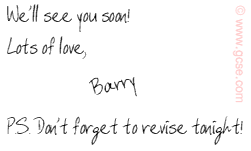 We'll see you soon!
Lots of love,
Barry
P.S. Don't forget to revise tonight!
© www.gcse.com